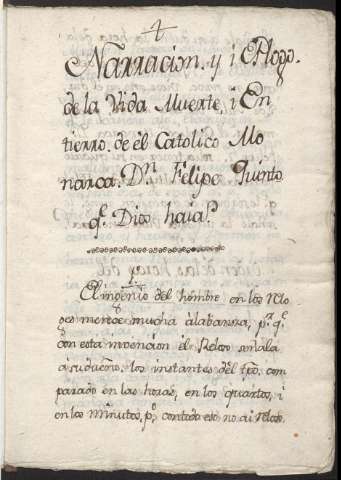 Narracion. y i Epilogo.
de la Vida Muerte, i En
tierro. de el Catolico Mo
narca. Dn. Felipe Quinto.
q.e Dios haia.
El ingenio del hombre en los Relo
ges merece mucha àlabanza, p.r q.e
con esta invencion èl Relox señala
à su dueño. los instantes del tpo. com
parado en las horas, en los quartos, i
en los minutos, p.o contodo eso no ai relox